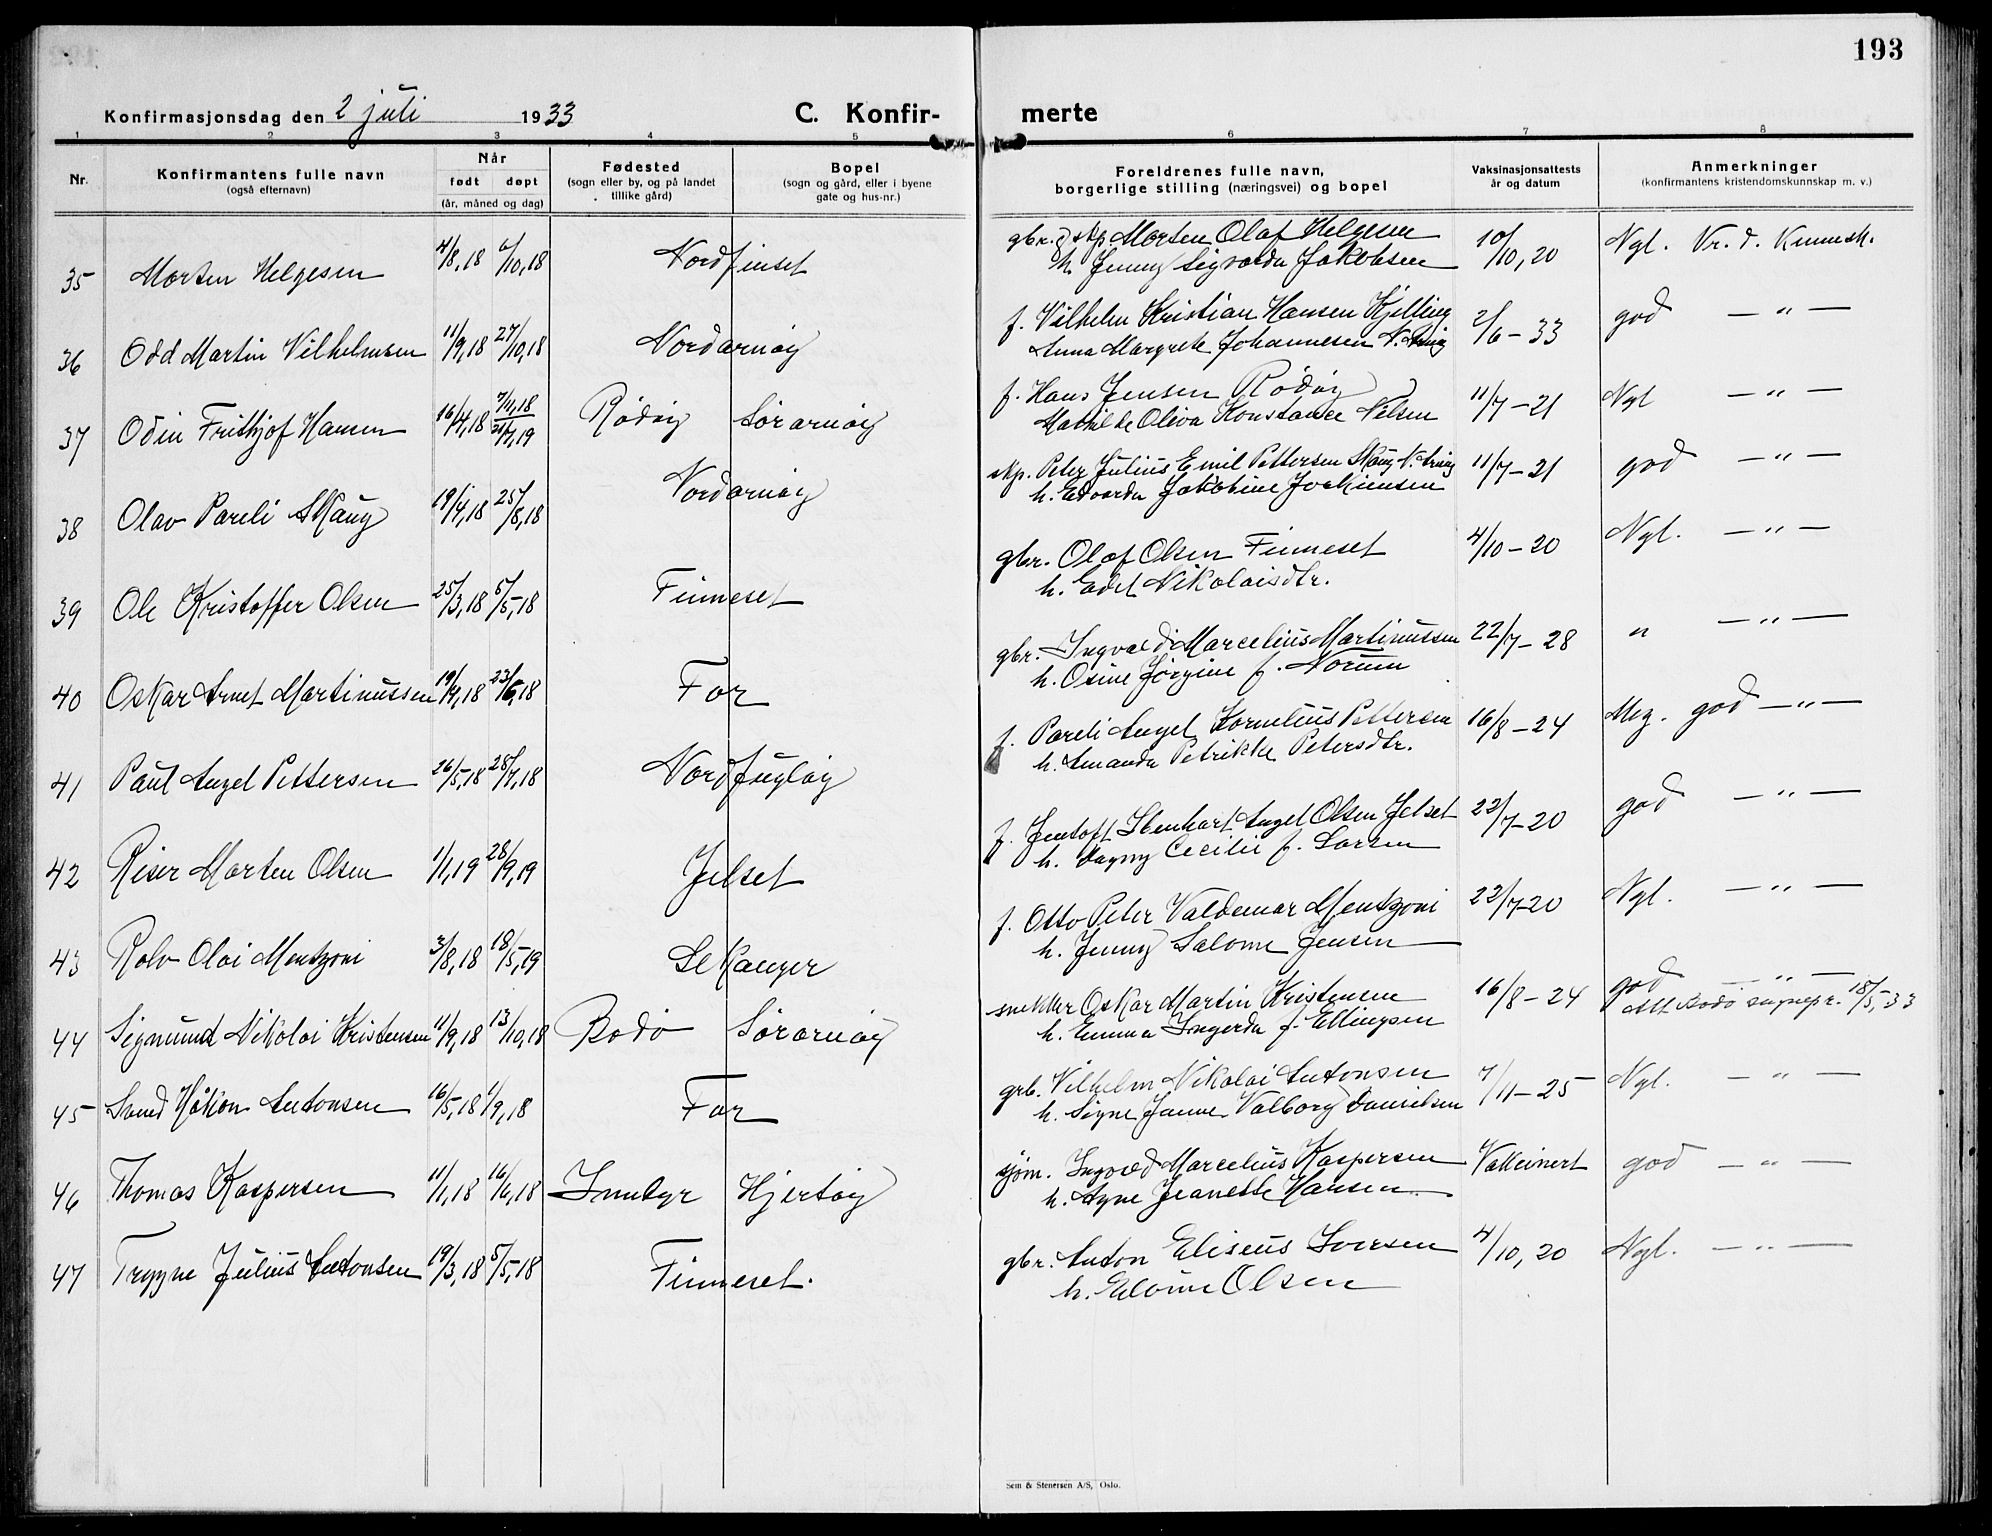 193
Konfirmasjonsdag den 2 juli 1933
C. Konfir-
merte
1 2 3 4 5 6 7 8
Nr.
Konfirmantens fulle navn
(også efternavn)
Når
født døpt
(år, måned og dag)
Fødested
(sogn eller by, og på landet
tillike gård)
Bopel
(sogn og gård, eller i byene
gate og hus-nr.)
Foreldrenes fulle navn,
borgerlige stilling (næringsvei) og bopel
Vaksinasjonsattests
år og datum
Anmerkninger
(konfirmantens kristendomskunnskap m. v.)
gbr. skp Morten Olaf Helgesen
35 Morten Helgesen 4/8,18 6/10,18 Nordfinset h. Jenny Sigvarda Jakobsen 10/10,20 Ngl. Kr.d. Kunnsk.
f. Vilhelm Kristian Hansen Kjelling
36 Odd Martin Vilhelmsen 11/9,18 27/10,18 Nordarnøy Anna Margrete Johannesen N. Arnøy 2/6-33 god — „ —
f. Hans Jensen Rødøy
37 Odin Frithjof Hansen 16/4,18 7/11,18 Rødøy Sørarnøy Mathilde Oliva Konstanse Nilsen 11/7-21 Ngl — „ —
skp. Peter Julius Emil Pettersen Skaug N. Arnøy
38 Olav Pareli Skaug 19/4,18 25/8,18 Nordarnøy h. Edvarda Jakobine Joakimsen 11/7-21 god — „ —
gbr. Olaf Olsen Finneset
39 Ole Kristoffer Olsen 25/3,18 5/5,18 Finneset h. Edel Nikolaisdtr. 4/10-20 Ngl. — „ —
gbr. Ingvald Marcelius Martinussen
40 Oskar Arnet Martinussen 19/4,18 23/6,18 For h. Osine Jørgine f. Norum 22/7-28 „ — „ —
f. Pareli Angel Kornelius Pettersen
41 Paul Angel Pettersen 26/5,18 28/7,18 Nordfugløy h. Amanda Petrikke Petersdtr. 16/8-24 Meg. god — „ —
f. Jentoft Ibenhart Angel Olsen Jelset
42 Reier Morten Olsen 1/1,19 28/9,19 Jelset h. Dagny Cecilie f. Larsen 22/7-20 god — „ —
f. Otto Peter Valdemar Mentzoni
43 Rolv Olai Mentzoni 3/8,18 18/5,19 Sekanger h. Jenny Salome Jensen 22/7-20 Ngl. — „ —
snekker Oskar Martin Kristensen
44 Sigmund Nikolai Kristensen 11/9,18 13/10,18 Bodø Sørarnøy h. Emma Ingerda f. Ellingsen 16/8-24 god — „ —
Att. Bodø sognepr. 18/5,33
grb. Vilhelm Nikolai Antonsen
45 Svend Håkon Antonsen 16/5,18 1/9,18 For h. Signe Janne Valborg Danielsen 7/11-25 Ngl. — „ —
sjøm. Ingvald Marcelius Kaspersen
46 Thomas Kaspersen 11/1,18 16/6,18 Inndyr Hjertøy h. Agne Jeanette Hansen Vakcinert god — „ —
gbr. Anton Eliseus Iversen
47 Trygve Julius Antonsen 19/3,18 5/5,18 Finneset. h. Salomine Olsen 4/10,20 Ngl. — „ —
Sem & Stenersen A/S, Oslo.